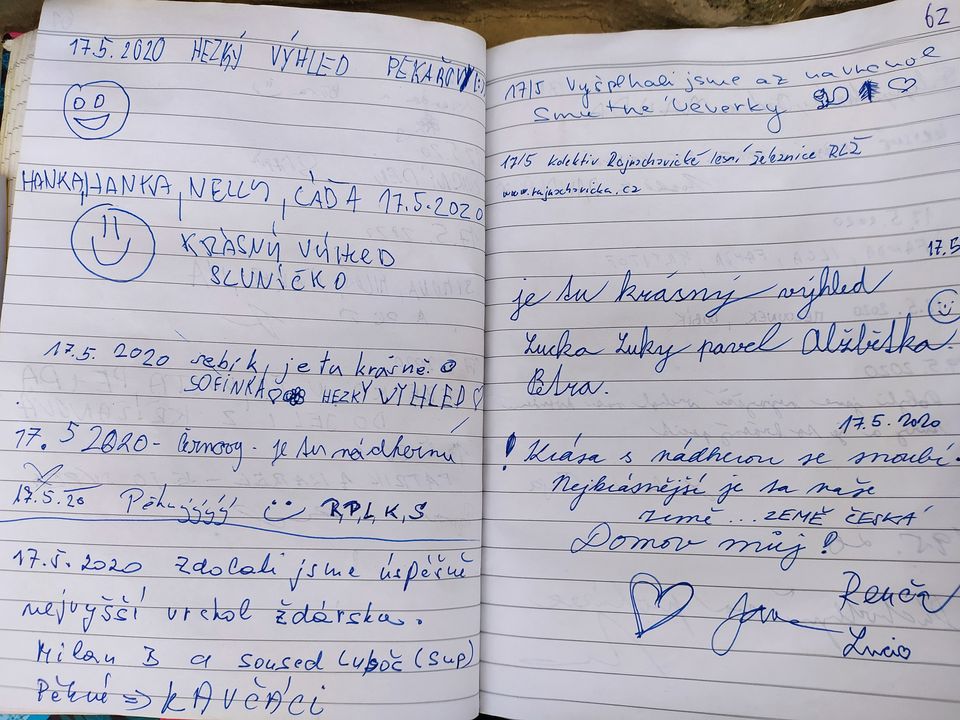 17.5.2020 HEZKÝ VÝHLED PEKAŘOVY :)
HANKA, HANKA, NELLY, CÁĎA 17.5.2020
KRÁSNÝ VÝHLED
SLUNÍČKO
17.5. 2020 sebík, je tu krásně
SOFINKA HEZKÝ VÝHLED
17. 5 2020 - je tu nádherně
17.5.20 Pěknýýýý R,P,L,K,S
17.5.2020 Zdolali jsme úspěšně
nejvyšší vrchol Žďárska.
Milan B a soused Luboč (Sup)
Pěkné => KAVČÁCI
62
17/5 Vyšplhali jsme až na vrchol
Smutné Veverky
17/5 kolektiv Rajnochovické lesní železnice RLŽ
www.rajnochovicka.cz
17.5
je tu krásný výhled
Lucka Luky pavel Alžbětka
Petra.
17.5.2020
! Krása s nádherou se snoubí.
Nejkrásnější je ta naše
země ... ZEMĚ ČESKÁ
Domov můj!
Renča
Lucia